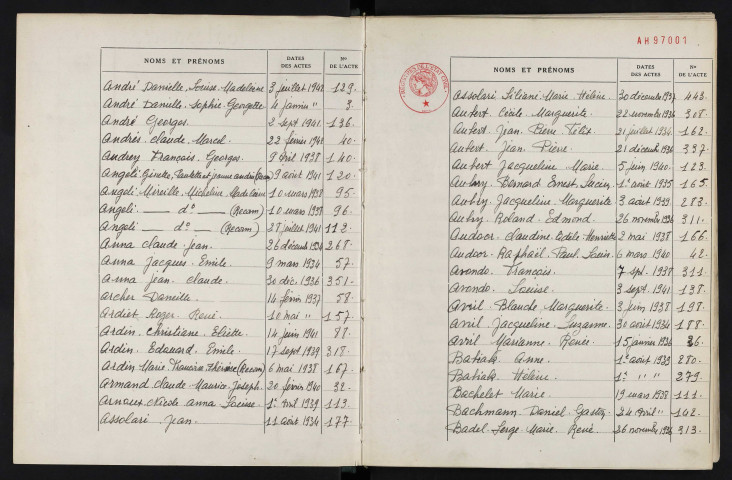 NOMS ET PRÉNOMS DATES DES ACTES Nos DE L'ACTE
André Danielle, Louise Madeleine 3 juillet 1942 129.
André Danielle Sophie Georgette 4 janvier " 3.
André Georges. 2 sept 1941. 136.
Andréis Claude Marcel 22 février 1942 40.
Audrey François Georges. 9 avril 1938 140.
Angeli Ginette, et Jeanne (Recon) 9 août 1941 120.
Angeli Mireille Micheline Madeleine 10 mars 1938 95.
Angeli — d° — (Recon) 10 mars 1938 96.
Angeli — d° — (Recon) 28 juillet 1941 112.
Anna Claude Jean. 26 décemb 1934 268.
Anna Jacques Emile. 9 mars 1934 57.
Anna Jean Claude. 30 déc. 1936 351.
Archer Danielle. 14 févr 1937 58.
Ardist Roger René. 10 mai " 157.
Ardin Christiane Eliette. 14 juin 1941 88.
Ardin Edouard Emile. 17 sept 1939 318.
Ardin Marie Thérèse (Recon) 6 mai 1938 167.
Armand Claude Maurice Joseph. 20 février 1940 32.
Arnoux Nicole Anna Louise 1er avril 1939 113.
Assolari Jean. 11 août 1934 177.
AH97001
NOMS ET PRÉNOMS DATES DES ACTES Nos DE L'ACTE
Assolari Liliane Marie Hélène. 30 décembre 1937 443.
Aubert Cécile Marguerite. 22 novembre 1936 308.
Aubert Jean Pierre Félix. 31 juillet 1934 162.
Aubert Jean Pierre. 21 décemb 1936 337.
Aubert Jacqueline Marie. 5 juin 1940. 123.
Aubry Bernard Ernest Lucien. 1er août 1935 165.
Aubry Jacqueline Marguerite 3 août 1939. 283.
Aubry Roland Edmond. 26 novembre 1936 311.
Audoer Claudine Henriette 2 mai 1938 166.
Audoer Raphaël Paul Louis. 6 mars 1940 42.
Avondo François. 7 spt. 1938 311.
Avondo Louise. 3 sept. 1941 138.
Avril Blanche Marguerite. 3 juin 1938 198.
Avril Jacqueline Suzanne. 30 août 1934 188.
Avril Marianne Renée. 15 janvier 1936 36.
Batiak Anne. 1er août 1939 280.
Batiak Hélène. 1er " " 279.
Bachelet Marie. 19 mars 1938 111.
Bachmann Daniel Gaston 24 avril " 142.
Badel Serge Marie René. 26 novembre 1936 313.